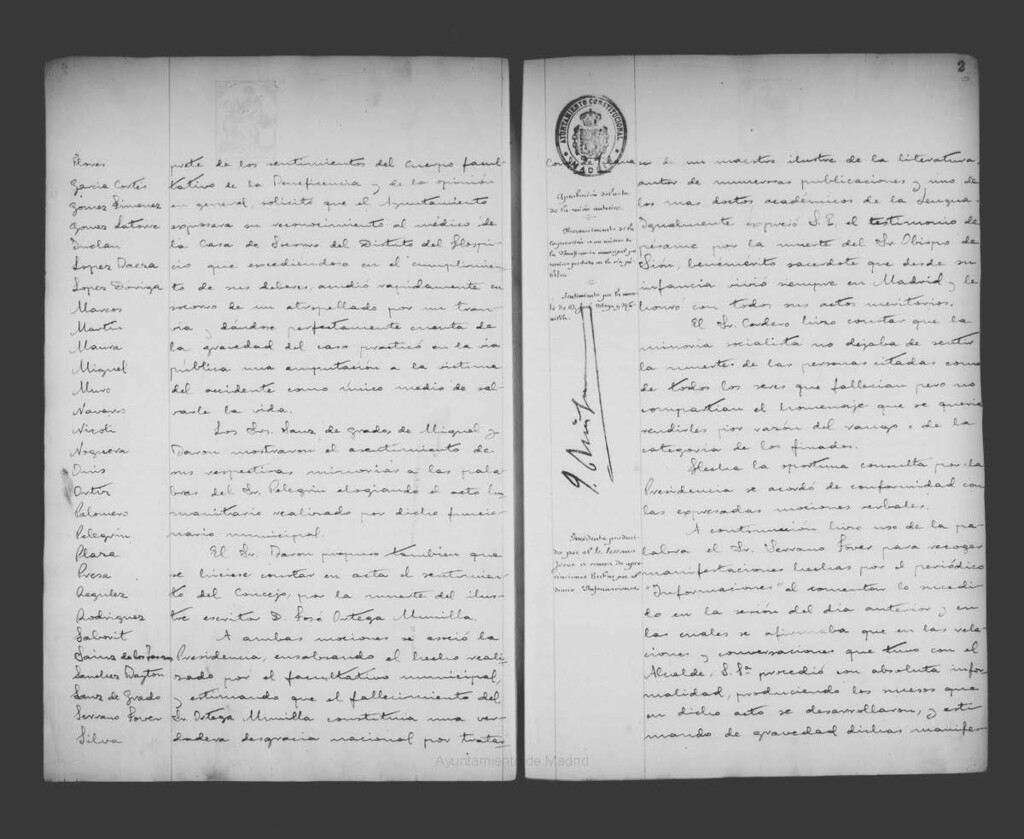 Flores
García Cortés
Gómez Jimenez
Gómez Latorre
López Baeza
López Dóriga
Marcos
Martín
Maura
Miguel
Muro
Navarro
Nicoli
Noguera
Onis
Ortiz
Palomero
Pelegrín
Plaza
Presa
Regulez
Rodríguez
Saborit
Sainz de los Terreros
Sanchez Bayton
Sanz de Grado
Serrano Jover
Silva
prete de los sentimientos del Cuerpo facul-
tativo de la Beneficencia y de la opinión
en general, solicitó que el Ayuntamiento
expresara su reconocimiento al médico de
la Casa de Socorro del Distrito del Hospi-
cio que excediendose en el cumplimien-
to de sus deberes, acudió rapidamente en
socorro de un atropellado por un tran-
via y dándose perfectamente cuenta de
la gravedad del caso practicó en la via
pública una amputación a la victima
del accidente como único medio de sal-
varle la vida.
Los Sres. Sanz de Grado, de Miguel y
Baron mostraron el asentimiento de
sus respectivas minorias a las pala-
bras del Sr. Pelegrin elogiando el acto hu-
manitario realizado por dicho funcio-
nario municipal.
El Sr. Baron propuso tambien que
se hiciese constar en acta el sentimien-
to del Concejo, por la muerte del ilus-
tre escritor D. José Ortega Munilla.
A ambas mociones se asoció la
Presidencia, ensalzando el hecho reali-
zado por el facultativo municipal,
y estimando que el fallecimiento del
Sr. Ortega Munilla constituia una ver-
dadera desgracia nacional por tratar
2
AYUNTAMIENTO CONSTITUCIONAL
MADRID
Aprobación del acta
de la sesión anterior.
Reconocimiento de la
Corporación a un médico de
la Beneficencia municipal por
Sentimiento por la muer-
te de D. José Ortega y Mu-
nilla.
Incidente produci-
do por el Sr. Serrano
Jover a causa de apre-
ciaciones hechas por el
diario Informaciones.
se de un maestro ilustre de la literatura,
autor de numerosas publicaciones y uno de
los mas doctos académicos de la Lengua.
Igualmente expresó S. E. el testimonio de
pésame por la muerte del Sr. Obispo de
Sión, benemérito sacerdote que desde su
infancia vivió siempre en Madrid y le
honró con todos sus actos meritorios.
El Sr. Cordero hizo constar que la
minoria socialista no dejaba de sentir
la muerte de las personas citadas como
de todos los seres que fallecian pero no
compartian el homenaje que se queria
rendirles por razón del rango o de la
categoria de los finados.
Hecha la oportuna consulta por la
Presidencia se acordó de conformidad con
las expresadas mociones verbales.
A continuación hizo uso de la pa-
labra el Sr. Serrano Jover para recoger
manifestaciones hechas por el periódico
"Informaciones" al comentar lo sucedi-
do en la sesión del dia anterior y en
las cuales se afirmaba que en las rela-
ciones y conversaciones que tuvo con el
Alcalde, S. Sª procedió con absoluta infor-
malidad, produciendo los sucesos que
en dicho acto se desarrollaron, y esti-
mando de gravedad dichas manifes-
Ayuntamiento de Madrid